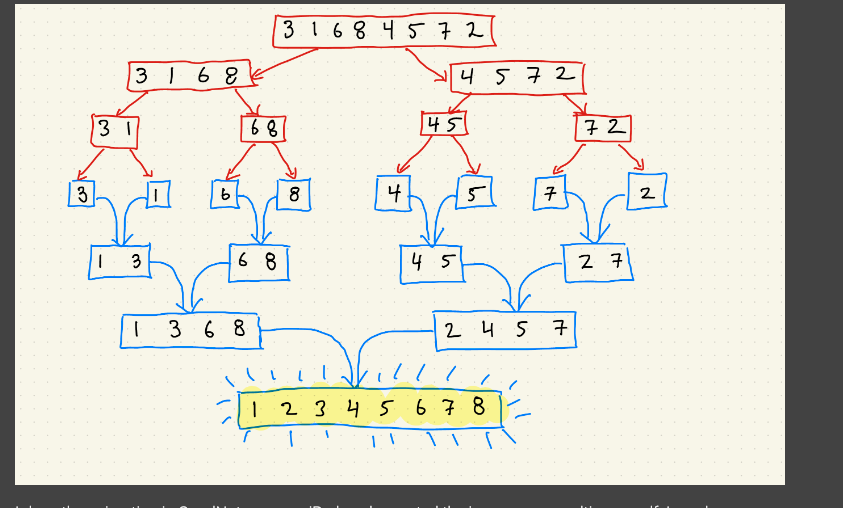 3 1 6 8 4 5 7 2
3 1 6 8
4 5 7 2
3 1
6 8
4 5
7 2
3
1
6
8
4
5
7
2
1 3
6 8
4 5
2 7
1 3 6 8
2 4 5 7
1 2 3 4 5 6 7 8